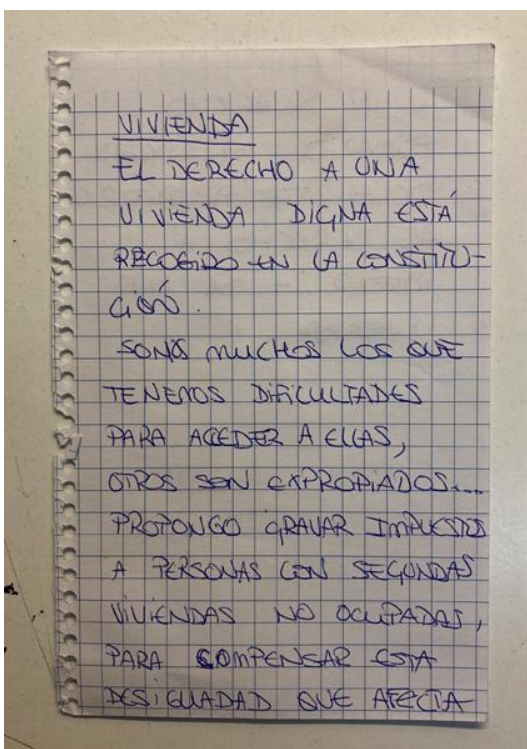 VIVIENDA
EL DERECHO A UNA
VIVIENDA DIGNA ESTÁ
RECOGIDO EN LA CONSTITU-
CIÓN.
SOMOS MUCHOS LOS QUE
TENEMOS DIFICULTADES
PARA ACCEDER A ELLAS,
OTROS SON EXPROPIADOS....
PROPONGO GRAVAR IMPUESTOS
A PERSONAS CON SEGUNDAS
VIVIENDAS NO OCUPADAS,
PARA COMPENSAR ESTA
DESIGUADAD QUE AFECTA